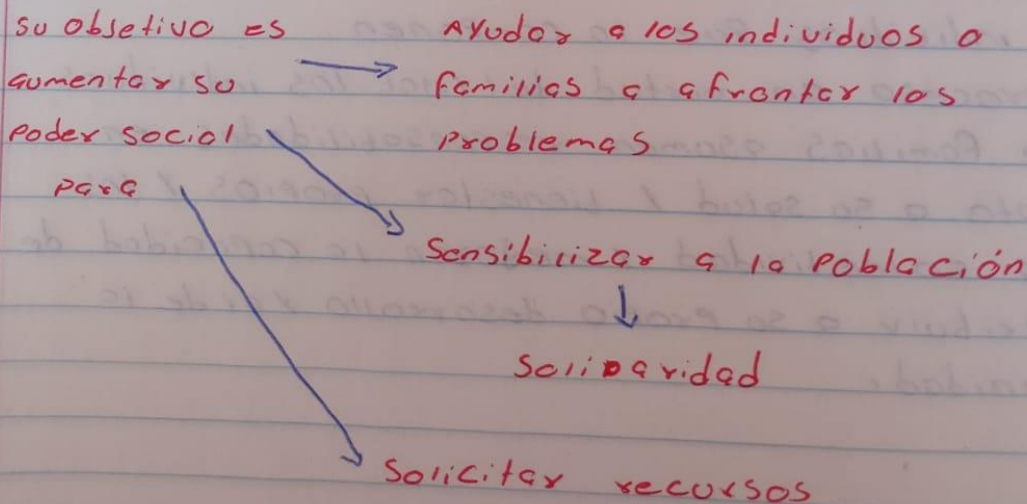 su obsetivo es
aumentar su
poder social
para
Ayudar a los individuos o
familias a afrontar los
problemas
Sensibilizar a la población
Solidaridad
Solicitar recursos